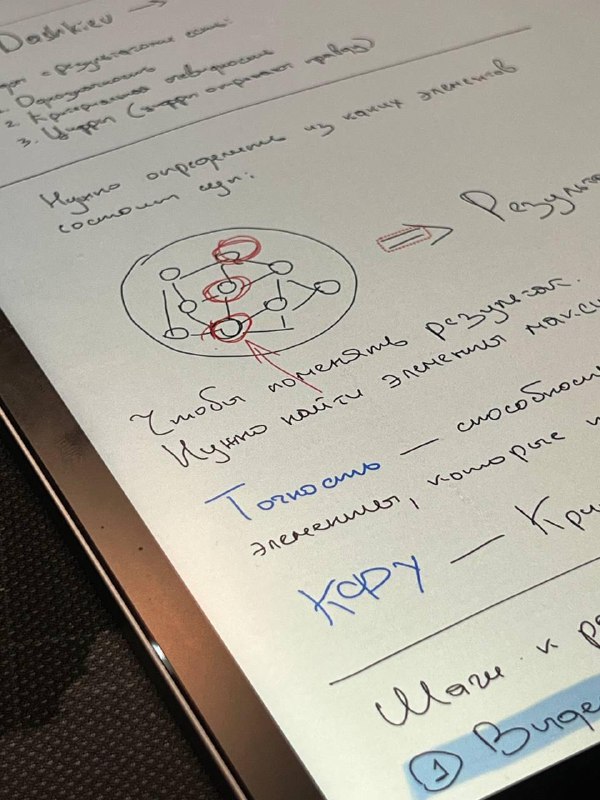 Dashkiev →
результат есть:
1. Однозначность
2. Критериальная очевидность
3. Цифры (цифры отражают правду)
Нужно определить из каких элементов
состоит цель:
⇒ Резуль
Чтобы поменять результат.
Нужно найти элементы макси
Точность — способность
элементы, которые
КФРУ — Кри
Шаги к ре
① Виде